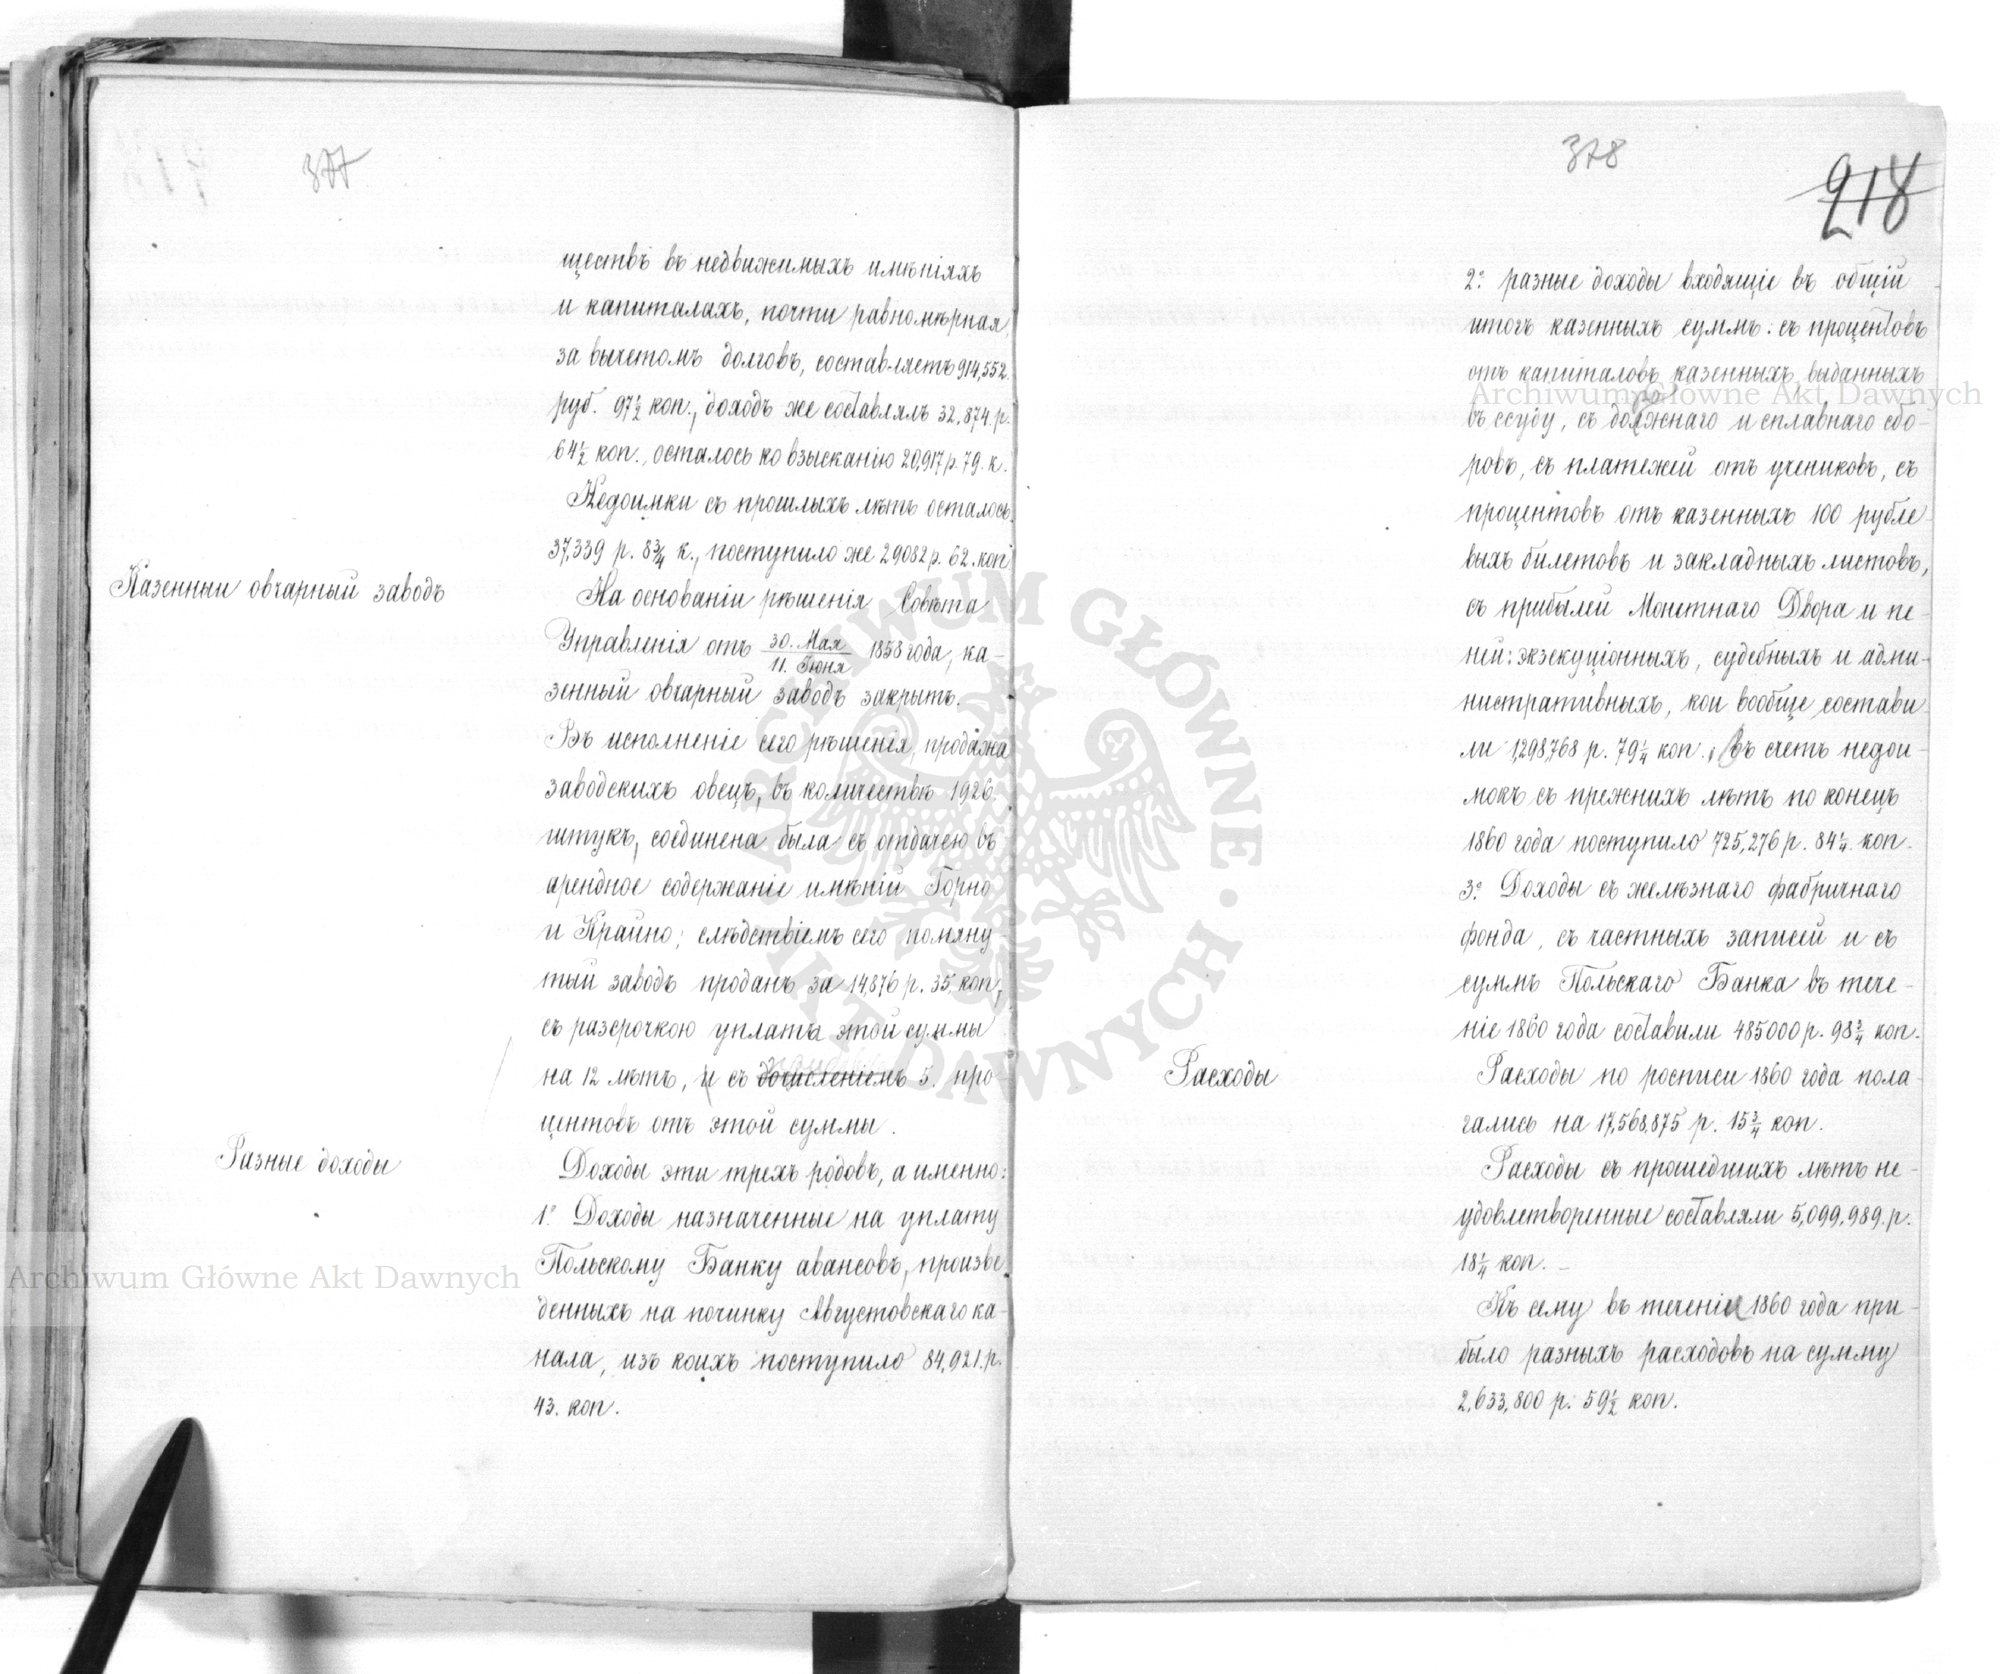 377
ществъ въ недвижимыхъ имѣніяхъ
и капиталахъ, почти равномѣрная,
за вычетомъ долговъ, составляетъ 914,552.
руб. 97½ коп., доходъ же составлялъ 32,874. р.
64½ коп., осталось ко взысканію 20,917 р. 79. к.
Недоимки съ прошлыхъ лѣтъ осталось
37,339 р. 8¾ к., поступило же 29082 р. 62. коп.
Казенный овчарный заводъ
На основаніи рѣшенія Совѣта
Управленія отъ 30. Мая / 11. Іюня 1858 года, ка-
зенный овчарный заводъ закрытъ.
Въ исполненіе сего рѣшенія, продажа
заводскихъ овецъ, въ количествѣ 1926.
штукъ, соединена была съ отдачею въ
арендное содержаніе имѣній Горно
и Крайно; слѣдствіемъ сего помяну-
тый заводъ проданъ за 14,876 р. 35. коп.,
съ разсрочкою уплаты этой суммы
на 12 лѣтъ, и съ дочисленіемъ 5. про-
центовъ отъ этой суммы.
Разные доходы
Доходы эти трехъ родовъ, а именно:
1º. Доходы назначенные на уплату
Польскому Банку авансовъ, произве-
денныхъ на починку Августовскаго ка-
нала, изъ коихъ поступило 84,921. р.
43. коп.
Archiwum Główne Akt Dawnych
378
218
2º. разные доходы входящіе въ общій
итогъ казенныхъ суммъ: съ процентовъ
отъ капиталовъ казенныхъ, выданныхъ
въ ссуду, съ должнаго и сплавнаго сбо-
ровъ, съ платежей отъ учениковъ, съ
процентовъ отъ казенныхъ 100 рубле-
выхъ билетовъ и закладныхъ листовъ,
съ прибылей Монетнаго Двора и пе-
ней: экзекуціонныхъ, судебныхъ и адми-
нистративныхъ, кои вообще состави-
ли 1,298,768 р. 79¼ коп.; въ счетъ недои-
мокъ съ прежнихъ лѣтъ по конецъ
1860 года поступило 725,276 р. 84¼ коп.
3º. Доходы съ желѣзнаго фабричнаго
фонда, съ частныхъ записей и съ
суммъ Польскаго Банка въ тече-
ніе 1860 года составили 485000 р. 98¾ коп.
Расходы
Расходы по росписи 1860 года пола-
гались на 17,568,875 р. 15¾ коп.
Расходы съ прошедшихъ лѣтъ не-
удовлетворенные составляли 5,099,989. р.
18¼ коп. —
Къ сему въ теченіи 1860 года при-
было разныхъ расходовъ на сумму
2,633,800 р. 59½ коп.
Archiwum Główne Akt Dawnych
ARCHIWUM GŁÓWNE · AKT DAWNYCH ·